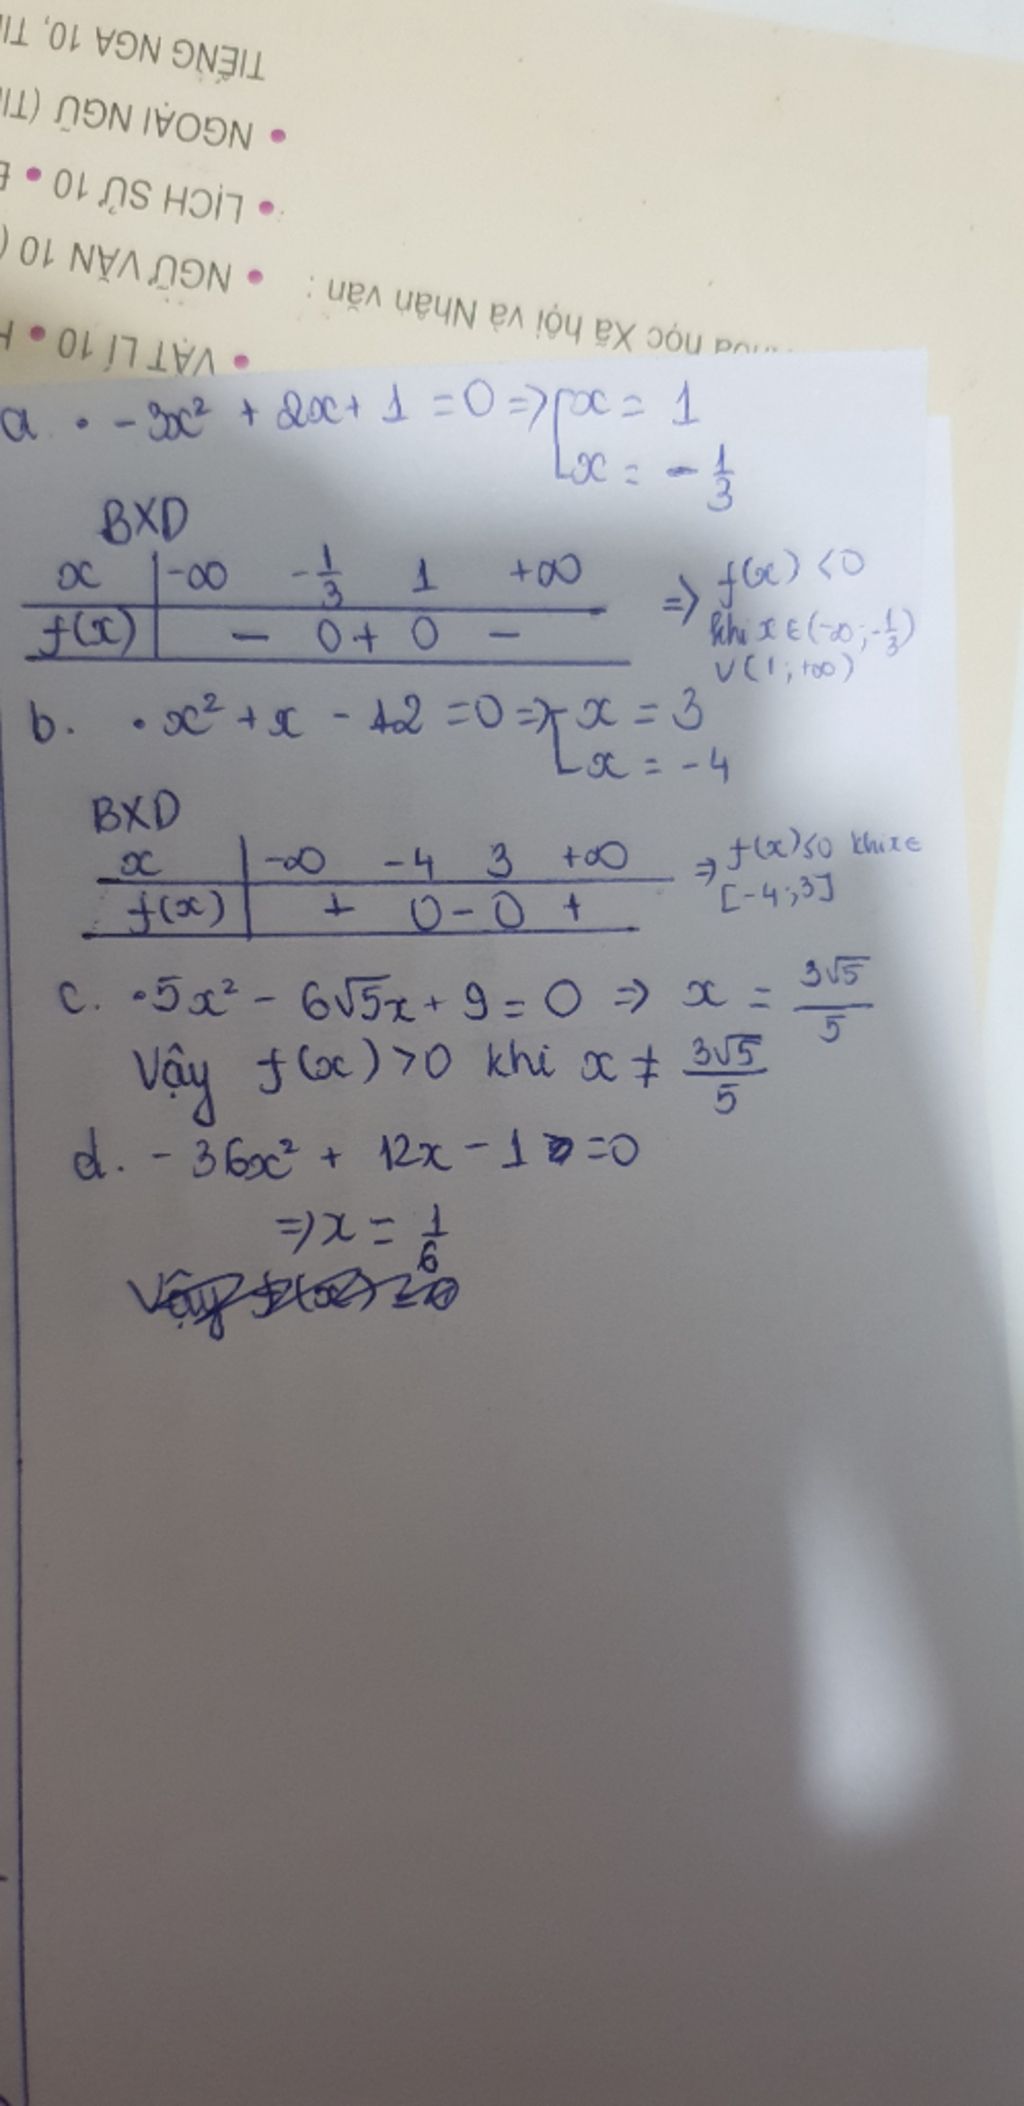 TIẾNG NGA 10, TI
• NGOẠI NGỮ (TI
• LỊCH SỬ 10 •
• NGỮ VĂN 10 (
học Xã hội và Nhân văn :
• VẬT LÍ 10 •
a. • -3x² + 2x + 1 = 0 => [x = 1
x = -1/3
BXD
x | -∞ -1/3 1 +∞
f(x) | - 0 + 0 -
=> f(x) <0
khi x ∈ (-∞; -1/3)
∪ (1; +∞)
b. • x² + x - 12 = 0 => [x = 3
x = -4
BXD
x | -∞ -4 3 +∞
f(x) | + 0 - 0 +
=> f(x) ≤0 khi x ∈
[-4;3]
c. • 5x² - 6√5x + 9 = 0 => x = 3√5/5
Vậy f(x) >0 khi x ≠ 3√5/5
d. -36x² + 12x - 1 = 0
=> x = 1/6